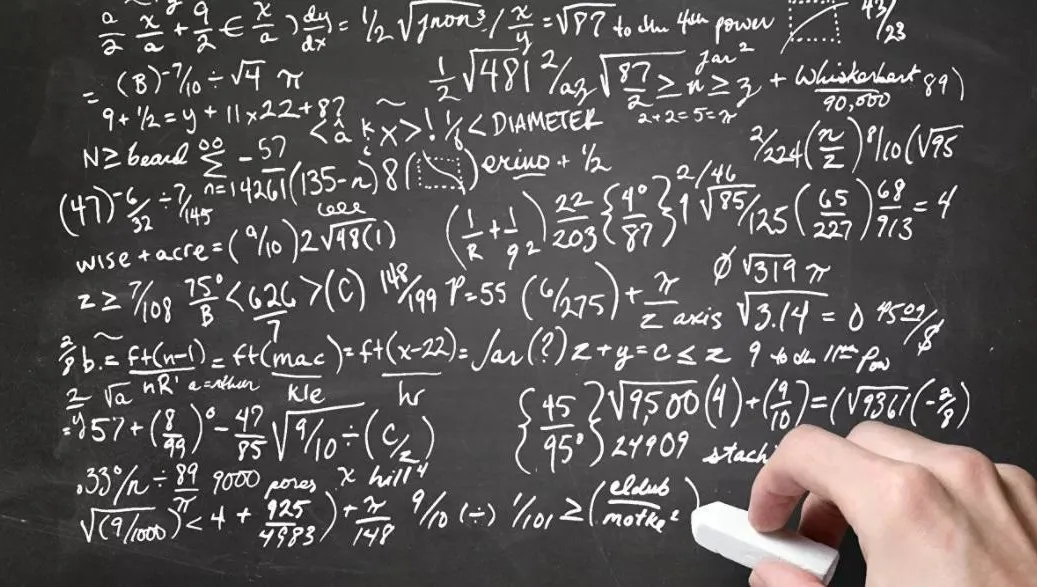 a/2 x/a + 9/2 € (x/a) dy/dx = 1/2 √jnon³ / x/y = √87 to the 4th power 43/23
= (B)^-7/10 ÷ √4 π 1/2 √481 2/az √87/2 ≥ n ≥ z + whiskerhart 89)
jar² 90,000
9 + 1/2 = y + 11 x 22 + 87 <â k x>! 1/6 < DIAMETER 2+2=5=π
N ≥ beard ∞ ∑ n=14261 -57/(135-n) 8( ) erino + 1/2 2/224 (n/z) 8/10 (√95
(47)^-6/32 ÷ 7/145 (1/R + 1/q²) 22/203 {4°/87} 9 2/46 √85/125 (65/227) 68/913 = 4
wise + acre = (9/10) 2√48(1)
z ≥ 7/108 75°/B < 626/7 > (C) 148/199 P=55 (6/275) + π/z axis ∅ √319 π
√3.14 = 0
2/8 b. = ft(n-1)/nR' = ft(mac)/kle = ft(x-22)/hr = Jar(?) z + y = c ≤ z 9 to the 11th Pow
2/y √a
= 957 + (8/99)° - 47/85 √9/10 ÷ (C/2) {45/95°} √9,500 (4) + (9/10) = (√9361 (-2/8)
24909 stach
.33°/n ÷ 89/π 9000 pores x hill⁴
√(9/1000) < 4 + 925/4983) + π/148 9/10 (÷) 1/101 ≥ (eldub/motke²)